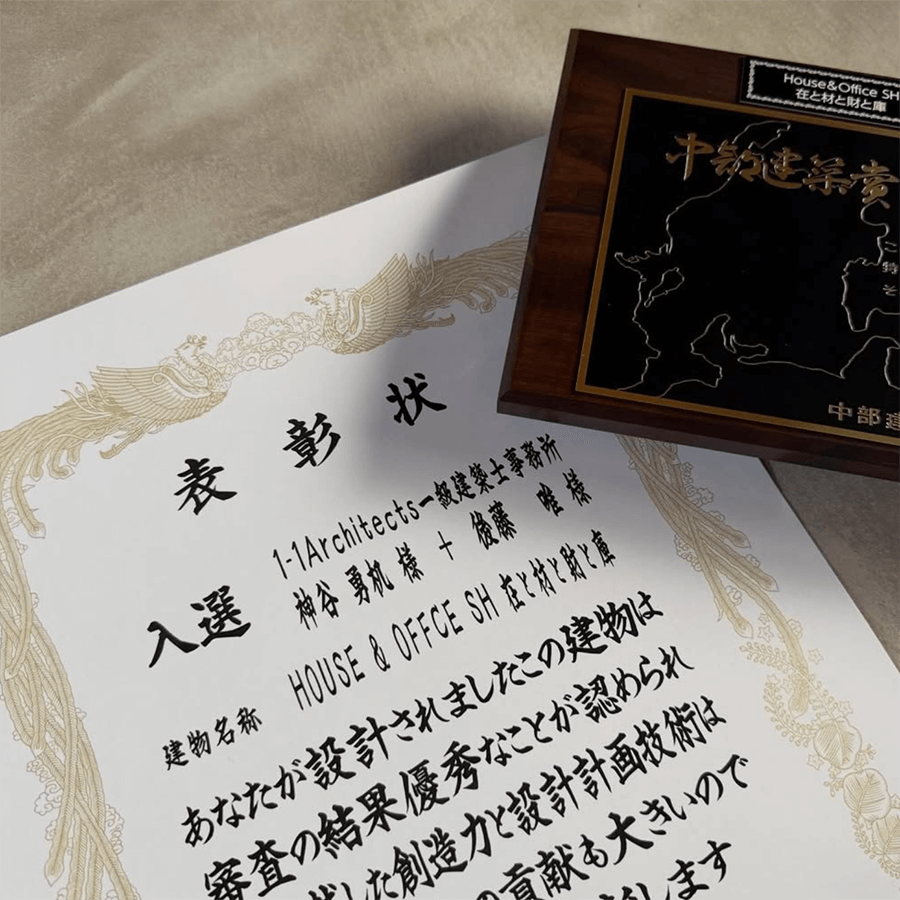 House&Office SH
在と材と財と庫
中部建築賞
こ
特
そ
中部建
表彰状
1-1Architects一級建築士事務所
入選 神谷 勇机 様 + 後藤 唯 様
建物名称 HOUSE & OFFCE SH 在と材と財と庫
あなたが設計されましたこの建物は
審査の結果優秀なことが認められ
した創造力と設計計画技術は
の貢献も大きいので
します